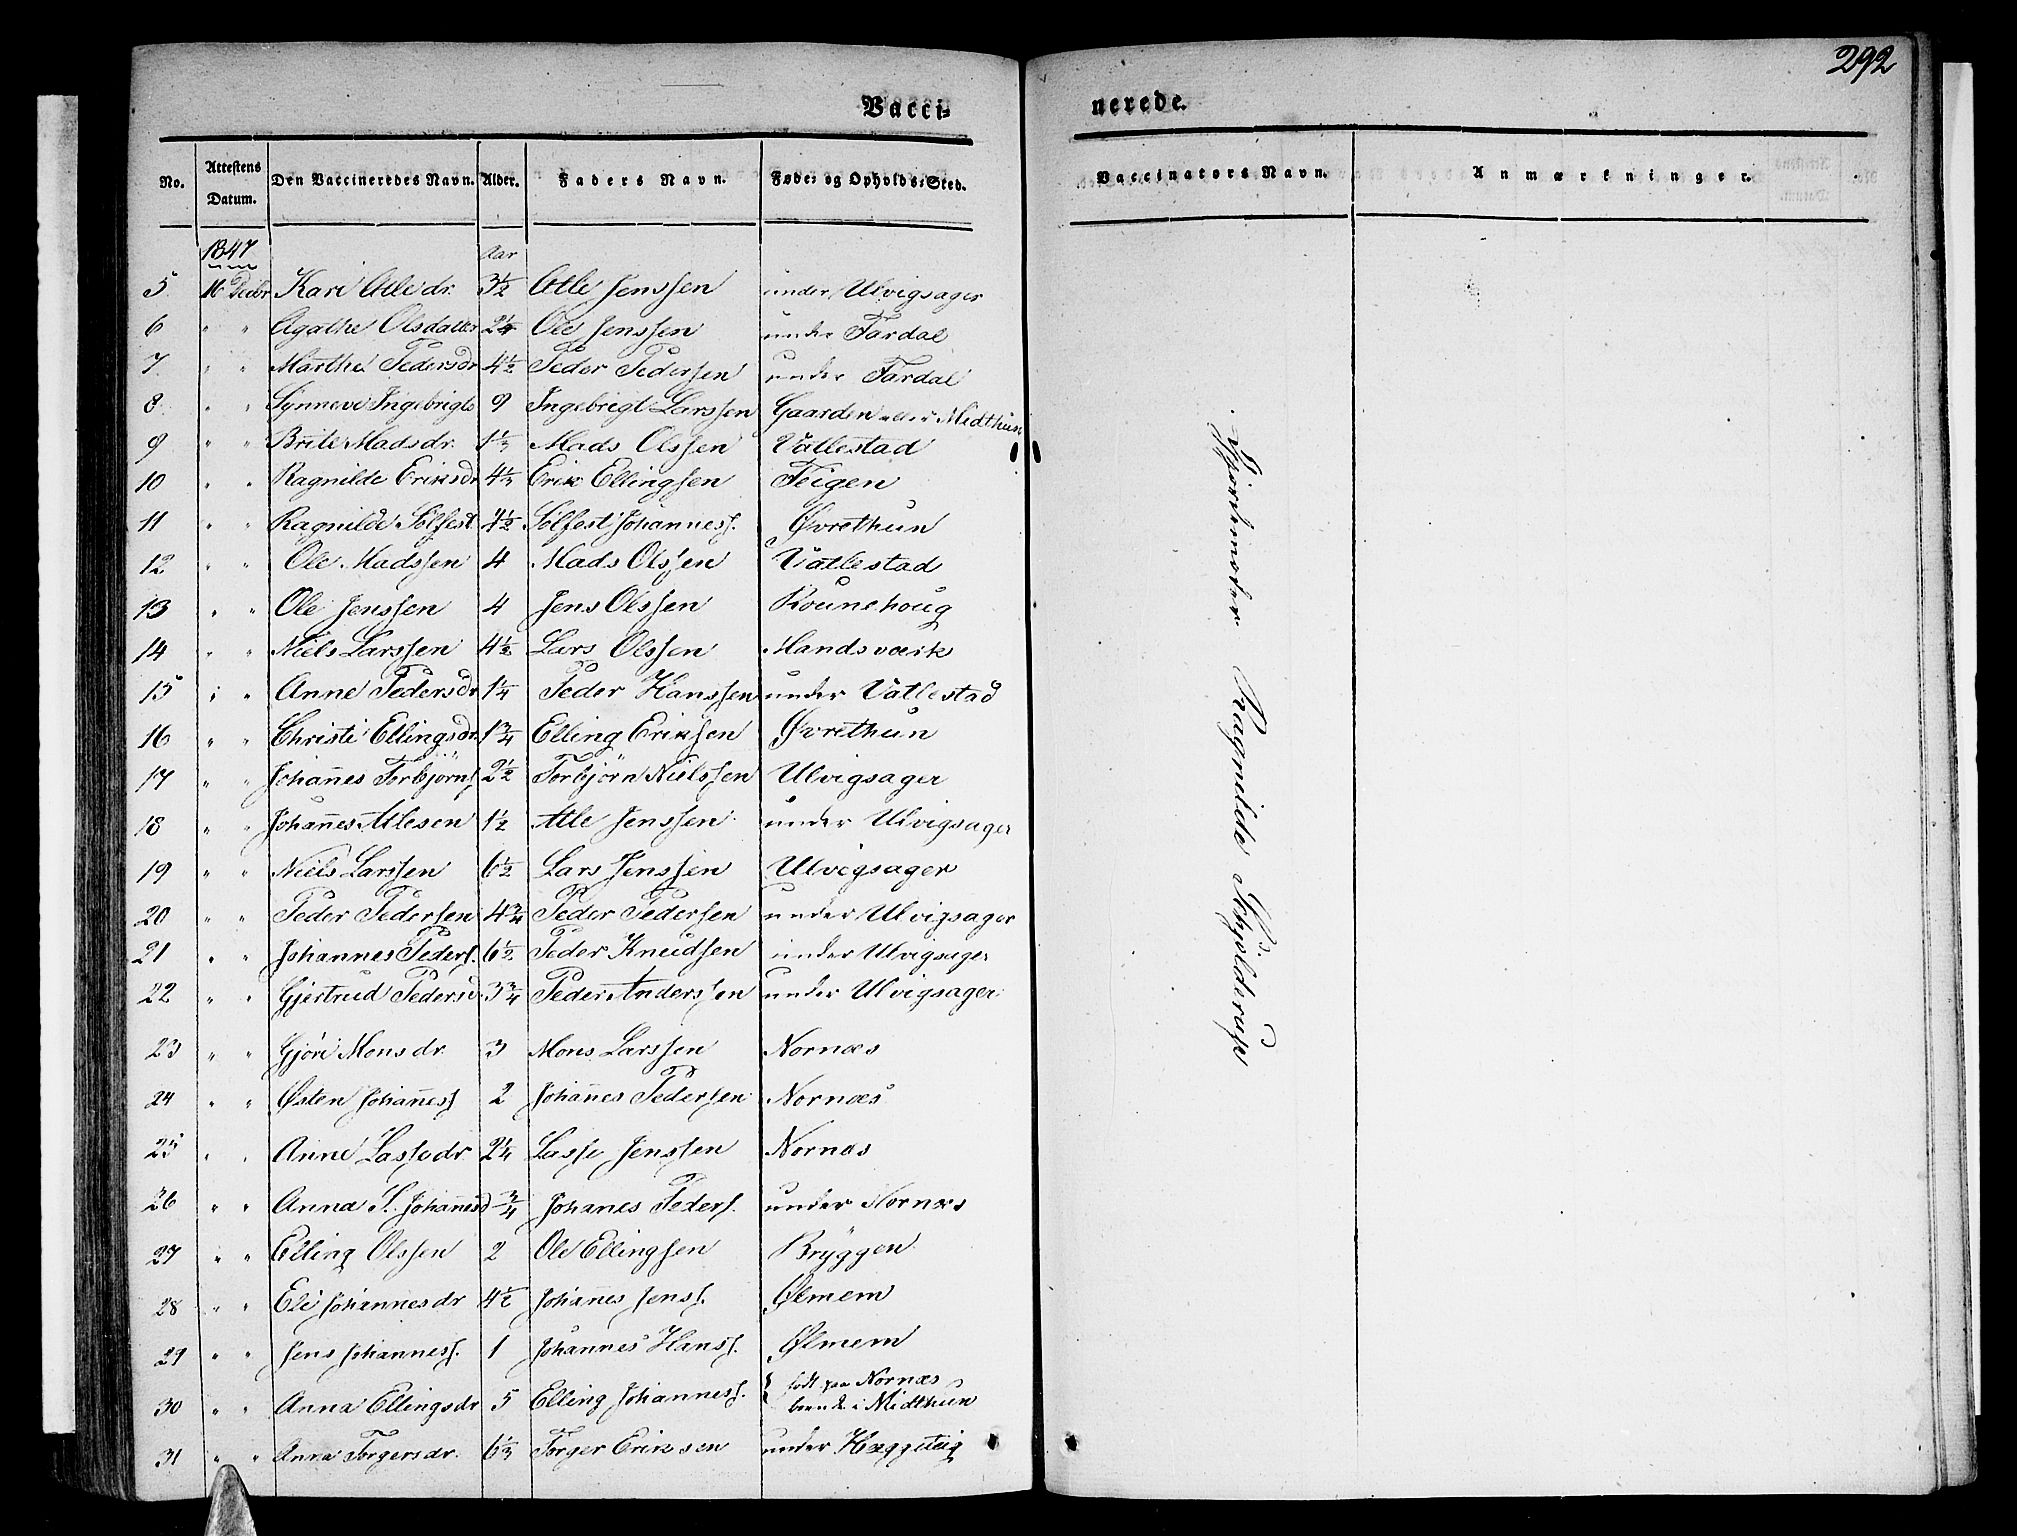 292
Vacci-
nerede.
No. Attestens Datum. Den Vaccineredes Navn. Alder. Faders Navn. Føde- og Opholds-Sted. Vaccinators Navn. Anmærkninger.
1847 Aar
5 16 Decbr Kari Atledr. 3½ Atle Jenssen under Ulvigsager
6 " " Agathe Olsdatter 2¼ Ole Jenssen under Fardal
7 " " Marthe Pedersdr 4½ Peder Pedersen under Fardal
8 " " Synneve Ingebrigts 9 Ingebrigt Larssen Gaarden Midthun
9 " " Brite Madsdr. 1⅓ Mads Olssen Vatlestad
10 " " Ragnilde Eriksdr 4⅓ Erik Ellingsen Teigen
11 " " Ragnilde Solfest 4½ Solfest Johanness. Øvrethun
12 " " Ole Madssen 4 Mads Olssen Vatlestad
13 " " Ole Jenssen 4 Jens Olssen
14 " " Niels Larssen 4½ Lars Olssen Mandsværk
15 " " Anne Pedersdr 1¼ Peder Hanssen under Vatlestad
16 " " Christi Ellingsdr. 1¾ Elling Eriksen Øvrethun
17 " " Johannes Torbjörns 2½ Torbjörn Nielssen Ulvigsager
18 " " Johannes Atlesen 1½ Atle Jenssen under Ulvigsager
19 " " Niels Larssen 6½ Lars Jenssen Ulvigsager
20 " " Peder Pedersen 4¾ Peder Pedersen under Ulvigsager
21 " " Johannes Peders. 6½ Peder Knudsen under Ulvigsager
22 " " Gjertrud Pedersd. 3¾ Peder Anderssen under Ulvigsager
23 " " Gjöri Monsdr. 3 Mons Larssen Nornæs
24 " " Østen Johanness 2 Johannes Pedersen Nornæs
25 " " Anne Lassedr. 2¼ Lasse Jenssen Nornæs
26 " " Anna S. Johannesd ¾ Johanes Peders. under Nornæs
27 " " Elling Olssen 2 Ole Ellingsen Bryggen
28 " " Eli Johannesdr 4½ Johannes Jenss. Ølmem
29 " " Jens Johanness. 1 Johannes Hanss. Ølmem
30 " " Anna Ellingsdr 5 Elling Johanness. født paa Nornæs
boende i Midthun
31 " " Anna Torgersdr. 6⅓ Torger Eriksen under Hæggeteig
Gjordemoder Ragnilde Schjölderup